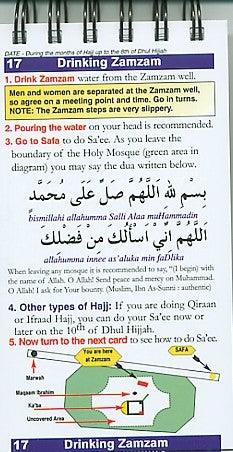 DATE - During the months of Hajj up to the 8th of Dhul Hijjah
17 Drinking Zamzam
1. Drink Zamzam water from the Zamzam well.
Men and women are separated at the Zamzam well,
so agree on a meeting point and time. Go in turns.
NOTE: The Zamzam steps are very slippery.
2. Pouring the water on your head is recommended.
3. Go to Safa to do Sa'ee. As you leave the
boundary of the Holy Mosque (green area in
diagram) you may say the dua written below.
بِسْمِ للهِ اللَّهُمَّ صَلِّ عَلَى مُحَمَّدٍ
bismillahi allahumma Salli Alaa muHammadin
اللَّهُمَّ إِنِّي أَسْأَلُكَ مِنْ فَضْلِكَ
allahumma innee as'aluka min faDlika
When leaving mosque it is recommended to say, "(I begin) with
the name of Allah. O Allah! Send peace and mercy on Muhammad.
O Allah! I ask for Your bounty. (Muslim, Ibn As-Sunni : authentic)
4. Other types of Hajj: If you are doing Qiraan
or Ifraad Hajj, you can do your Sa'ee now or
later on the 10th of Dhul Hijjah.
5. Now turn to the next card to see how to do Sa'ee.
You are here
at Zamzam
SAFA
Marwah
Maqaam Ibrahim
Ka'ba
Uncovered Area
17 Drinking Zamzam